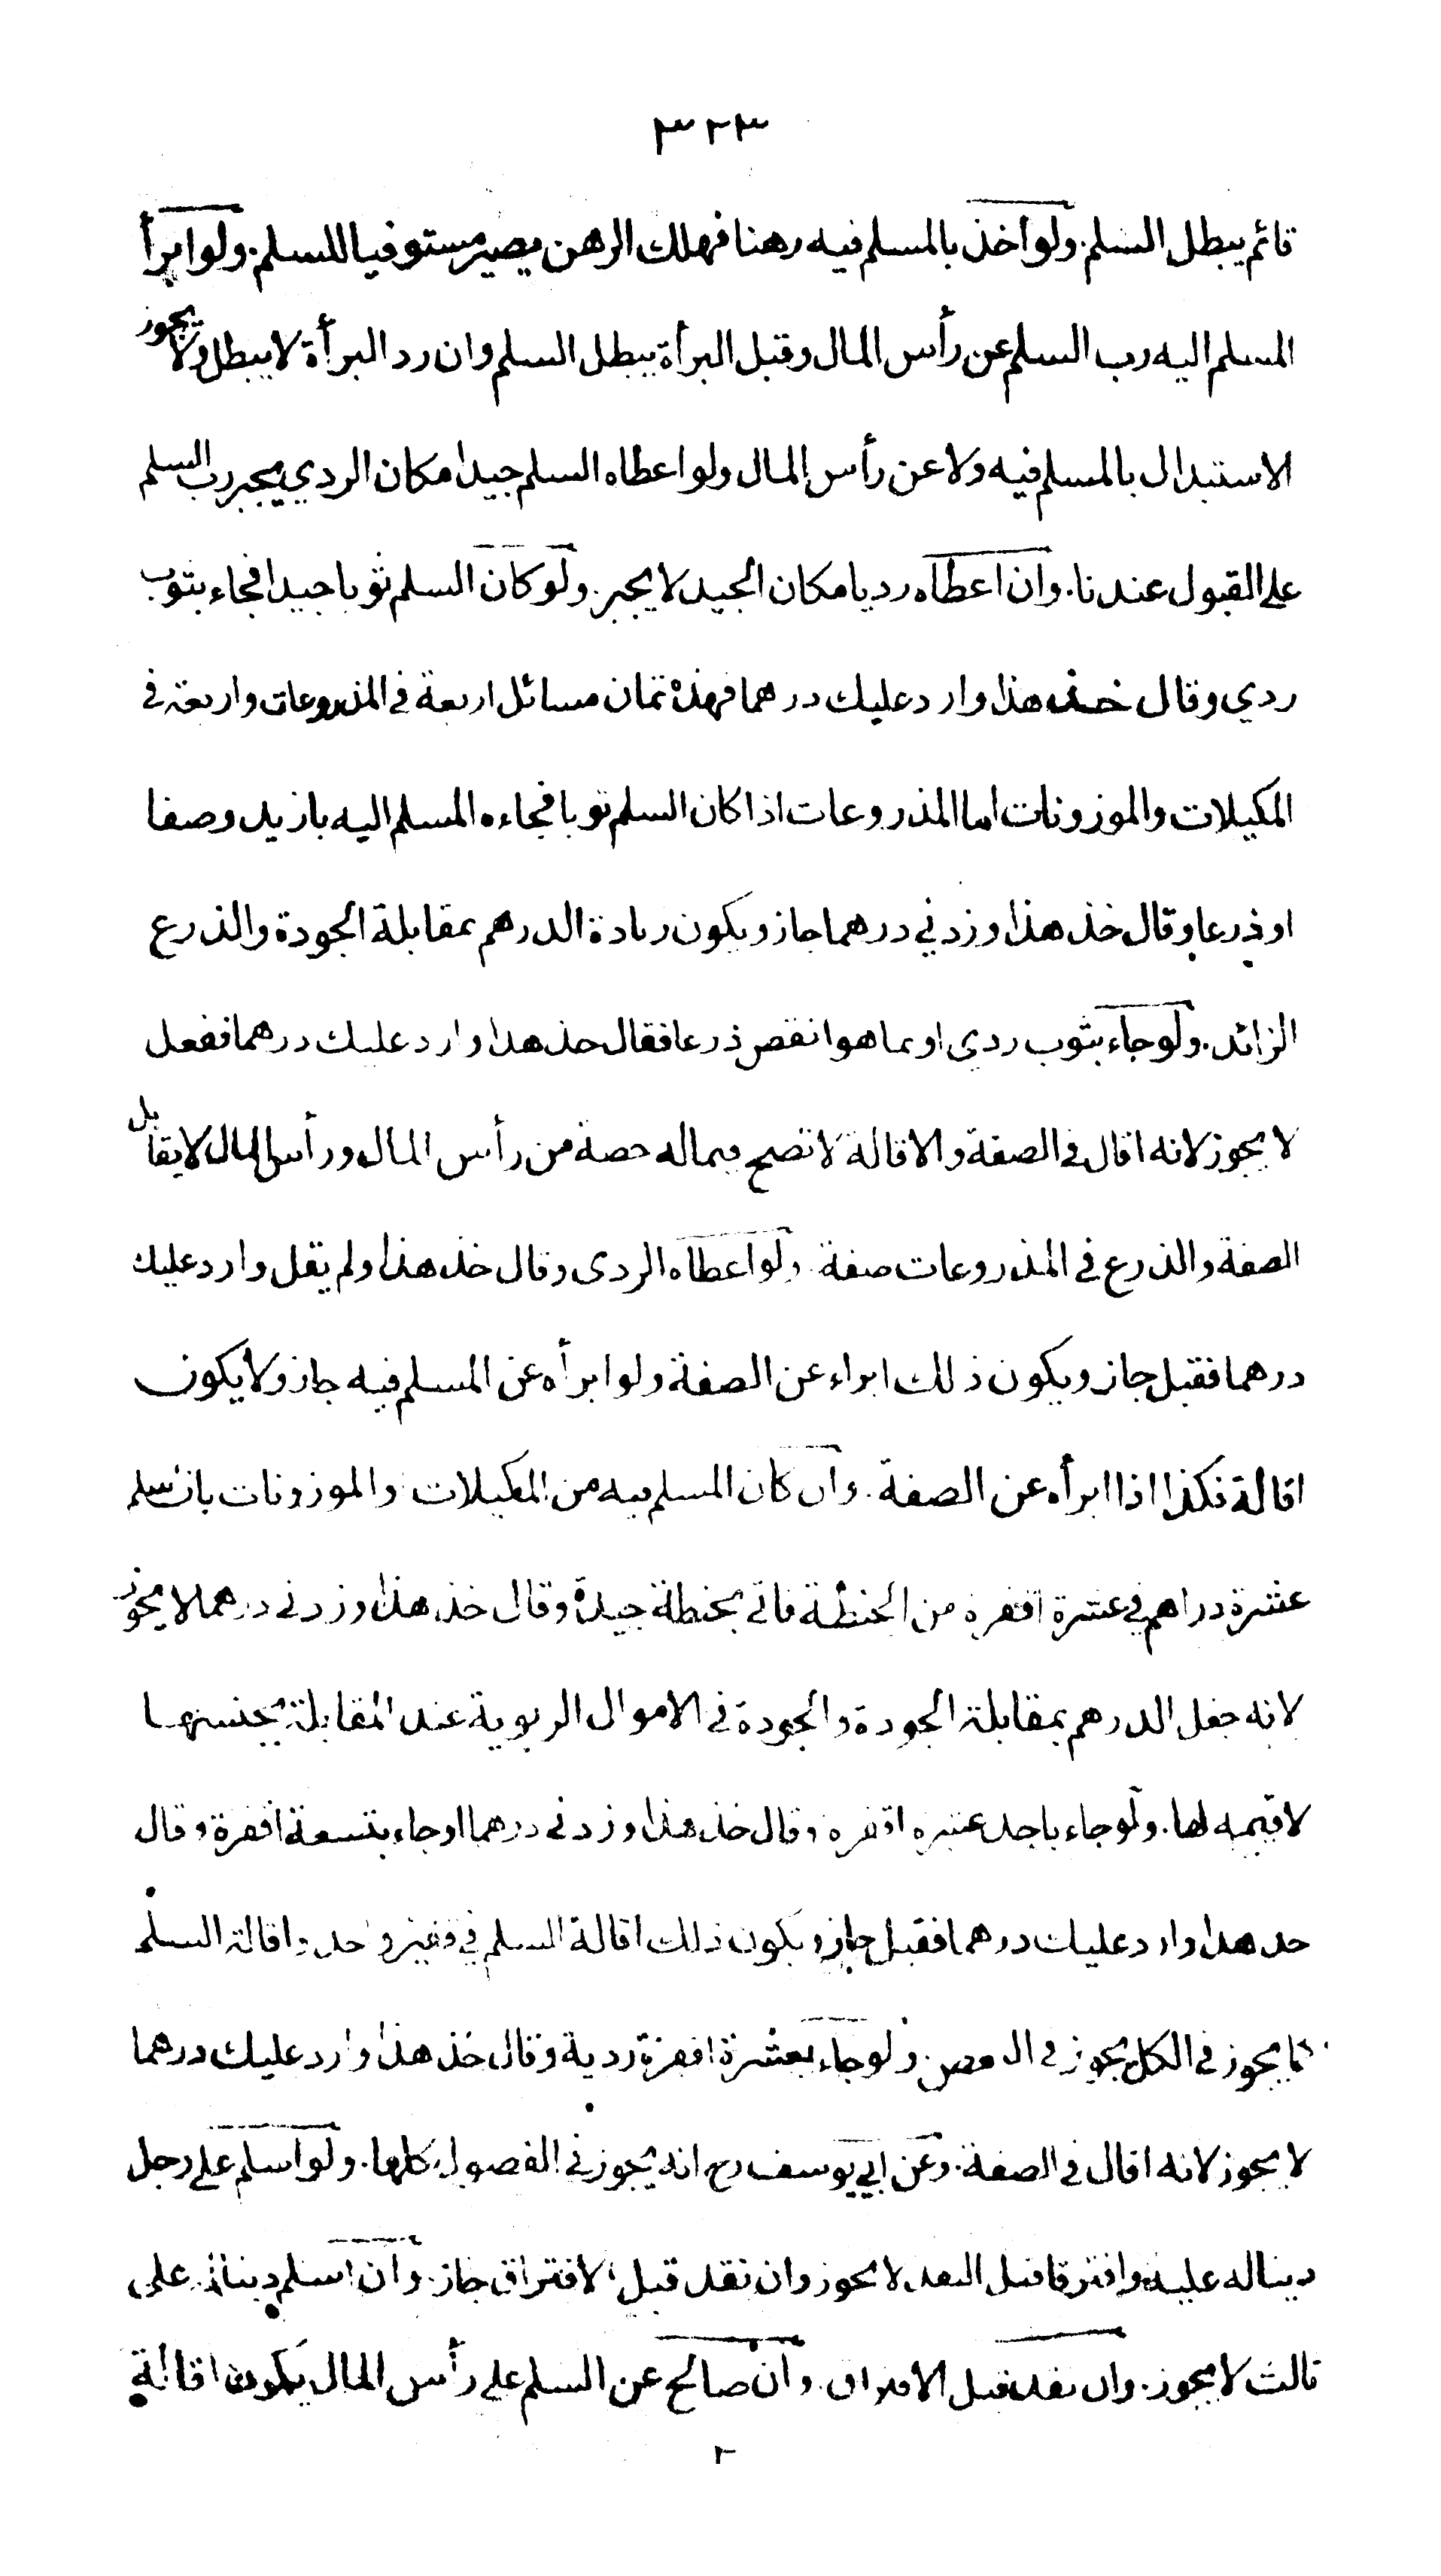 ٣٢٣
قائم يبطل السلم. ولو اخذ بالمسلم فيه رهنا فهلك الرهن يصير مستوفيا للسلم. ولو ابرأ
المسلم اليه رب السلم عن رأس المال وقبل البرأة يبطل السلم وان رد البرأة لا يبطل ولا يجوز
الاستبدال بالمسلم فيه ولا عن رأس المال ولو اعطاه السلم جيدا مكان الردي يجبر رب السلم
على القبول عندنا. وان اعطاه رديا مكان الجيد لا يجبر. ولو كان السلم ثوبا جيدا فجاء بثوب
ردي وقال خذ هذا وارد عليك درهما فهذه ثمان مسائل اربعة في المذروعات واربعة في
المكيلات والموزونات اما المذروعات اذا كان السلم ثوبا فجاءه المسلم اليه بازيد وصفا
او ذرعا وقال خذ هذا وزدني درهما جاز ويكون زيادة الدرهم بمقابلة الجودة والذرع
الزائد. ولو جاء بثوب ردي او بما هو انقص ذرعا فقال خذ هذا وارد عليك درهما ففعل
لا يجوز لانه اقال في الصفة والاقالة لا تصح فيما له حصة من رأس المال ورأس المال لا يقابل
الصفة والذرع في المذروعات صفة. ولو اعطاه الردي وقال خذ هذا ولم يقل وارد عليك
درهما فقبل جاز ويكون ذلك ابراء عن الصفة ولو ابرأه عن المسلم فيه جاز ولا يكون
اقالة فكذا اذا ابرأه عن الصفة. وان كان المسلم فيه من المكيلات والموزونات بان اسلم
عشرة دراهم في عشرة اقفزة من الحنطة فاتى بحنطة جيدة وقال خذ هذا وزدني درهما لا يجوز
لانه جعل الدرهم بمقابلة الجودة والجودة في الاموال الربوية عند المقابلة بجنسها
لا قيمة لها. ولو جاء باحد عشرة اقفزة وقال خذ هذا وزدني درهما او جاء بتسعة اقفزة وقال
خذ هذا وارد عليك درهما فقبل جاز ويكون ذلك اقالة السلم في قفيز واحد واقالة السلم
كما يجوز في الكل يجوز في البعض. ولو جاء بعشرة اقفزة ردية وقال خذ هذا وارد عليك درهما
لا يجوز لانه اقال في الصفة. وعن ابي يوسف رح انه يجوز في الفصول كلها. ولو اسلم على رجل
دينا له عليه وافترقا قبل النقد لا يجوز وان نقد قبل الافتراق جاز. وان اسلم دينا له على
ثالث لا يجوز. وان نقد قبل الافتراق. وان صالح عن السلم على رأس المال يكون اقالة
٢